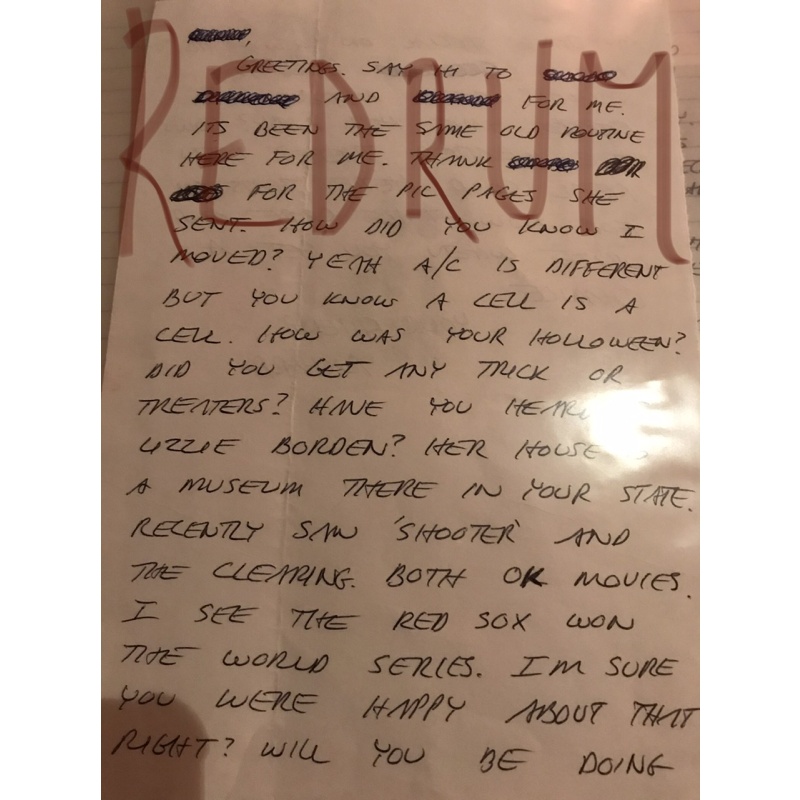 REDRUM
GREETINGS. SAY HI TO
AND FOR ME.
ITS BEEN THE SAME OLD ROUTINE
HERE FOR ME. THANK
FOR THE PIC PAGES SHE
SENT. HOW DID YOU KNOW I
MOVED? YEAH A/C IS DIFFERENT
BUT YOU KNOW A CELL IS A
CELL. HOW WAS YOUR HOLLOWEEN?
DID YOU GET ANY TRICK OR
TREATERS? HAVE YOU HEARD
LIZZIE BORDEN? HER HOUSE
A MUSEUM THERE IN YOUR STATE.
RECENTLY SAW 'SHOOTER' AND
THE CLEARING. BOTH OK MOVIES.
I SEE THE RED SOX WON
THE WORLD SERIES. I'M SURE
YOU WERE HAPPY ABOUT THAT
RIGHT? WILL YOU BE DOING